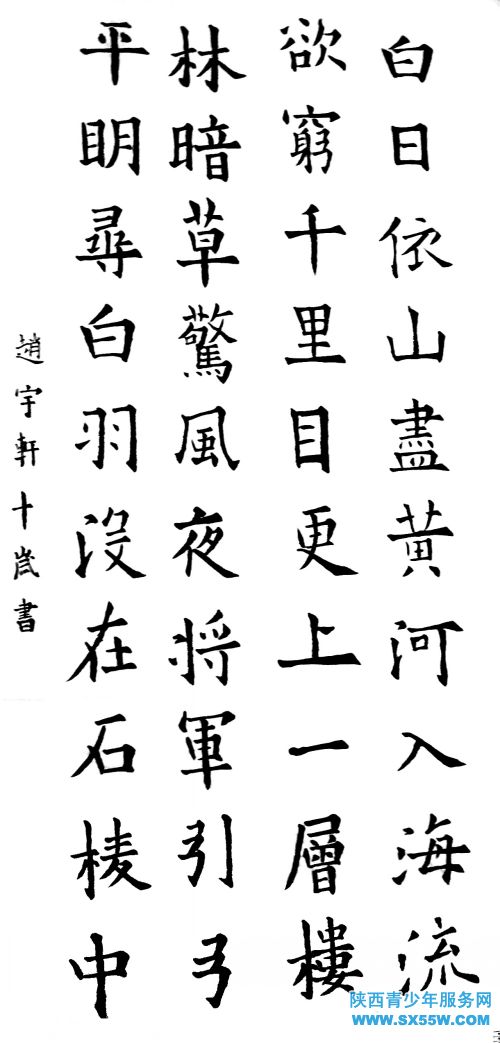 白日依山盡黄河入海流
欲窮千里目更上一層樓
林暗草驚風夜将軍引弓
平眀尋白羽没在石棱中
趙宇軒十歲書
陕西青少年服务网
www.sx55w.com